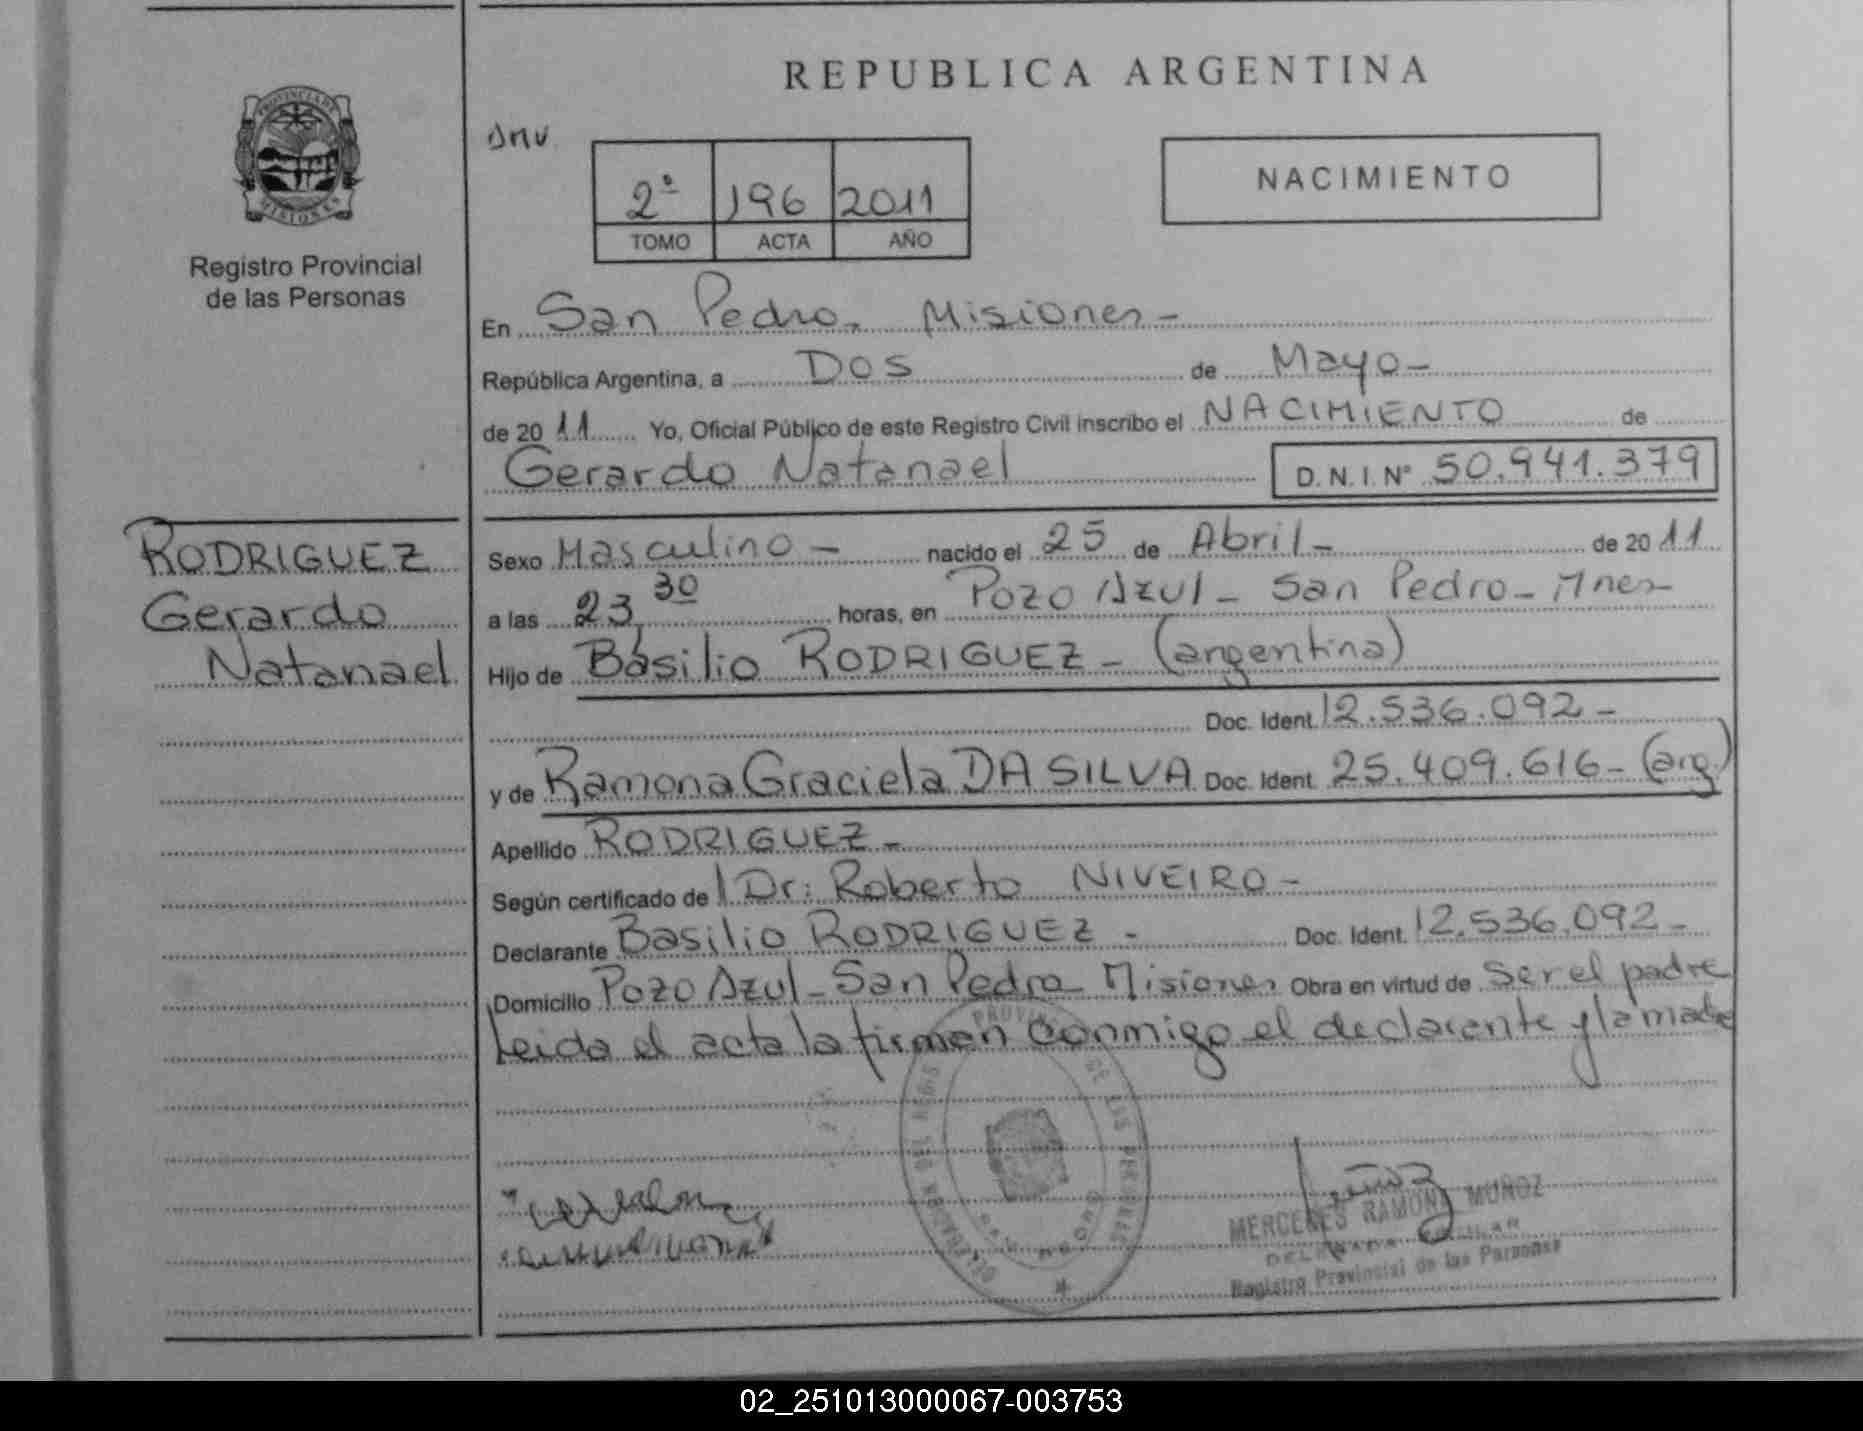 REPUBLICA ARGENTINA
PROVINCIA DE
MISIONES
Registro Provincial
de las Personas
DMV
2º 196 2011
TOMO ACTA AÑO
NACIMIENTO
En San Pedro, Misiones -
República Argentina, a DOS de Mayo -
de 2011 Yo, Oficial Público de este Registro Civil inscribo el NACIMIENTO de
Gerardo Natanael D.N.I. Nº 50.941.379
RODRIGUEZ
Gerardo
Natanael
Sexo Masculino - nacido el 25 de Abril - de 2011
a las 23 30 horas, en Pozo Azul - San Pedro - Mnes -
Hijo de Basilio RODRIGUEZ - (argentina)
Doc. Ident. 12.536.092 -
y de Ramona Graciela DA SILVA Doc. Ident. 25.409.616 - (arg)
Apellido RODRIGUEZ -
Según certificado de Dr: Roberto NIVEIRO -
Declarante Basilio RODRIGUEZ - Doc. Ident. 12.536.092 -
Domicilio Pozo Azul - San Pedro Misiones Obra en virtud de ser el padre
Leida el acta la firman conmigo el declarente y la madre
MERCEDES RAMONA MUÑOZ
Registro Provincial de las Personas
02_251013000067-003753